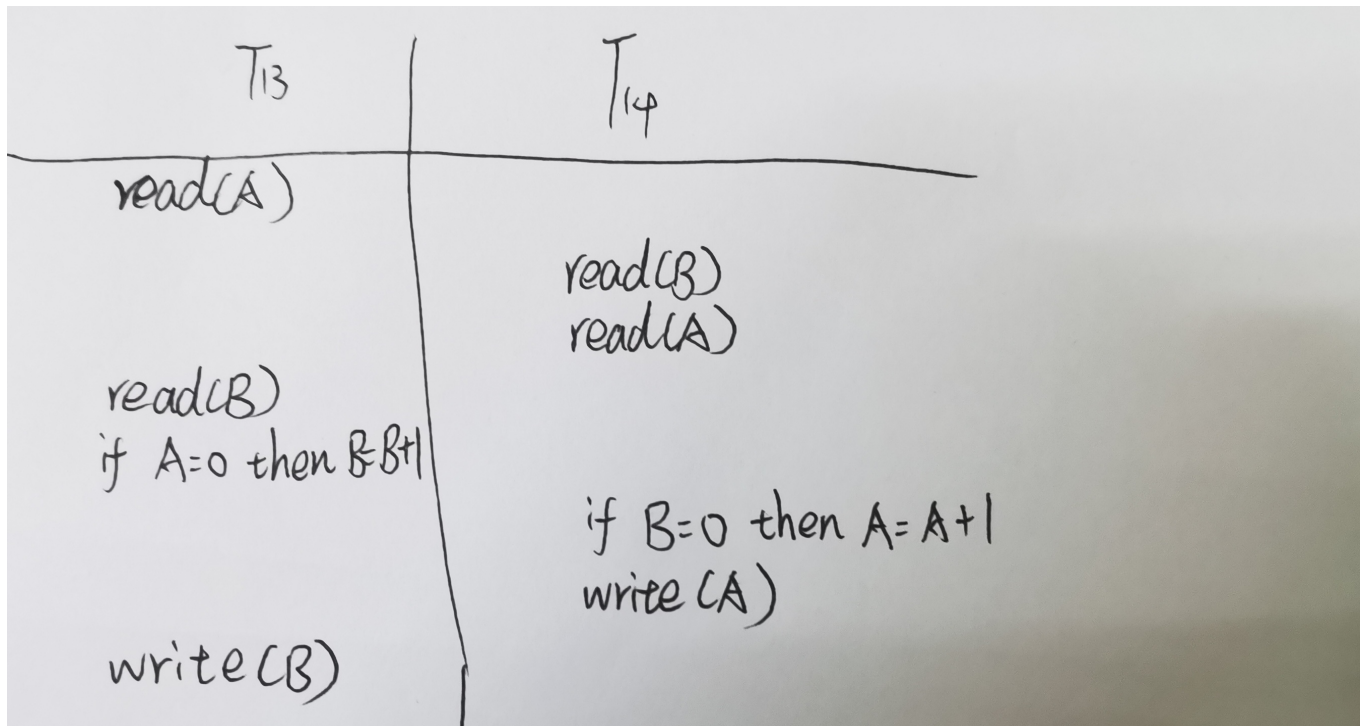 T13 T14
read(A)
read(B)
read(A)
read(B)
if A=0 then B=B+1
if B=0 then A=A+1
write(A)
write(B)